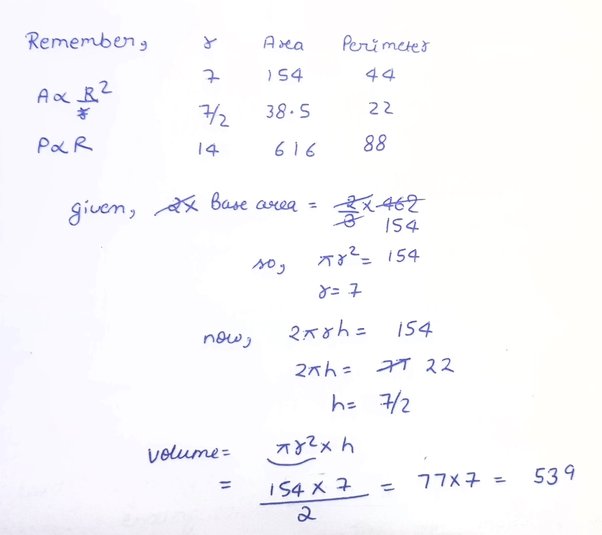 Remember, r Area Perimeter
7 154 44
A∝ R²
7/2 38.5 22
P∝R 14 616 88
given, 2x Base area = 2/3 x 462
154
so, πr² = 154
r= 7
now, 2πrh = 154
2πh = 22
h= 7/2
Volume= πr² x h
= 154 x 7 / 2 = 77x7 = 539